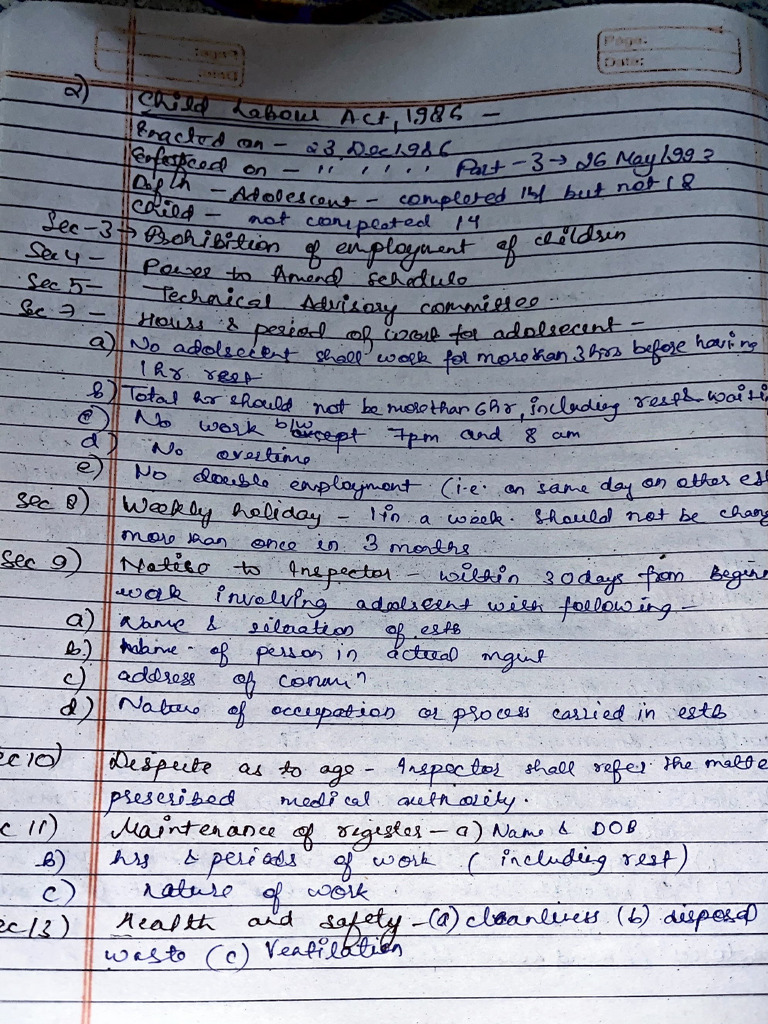 Page:
Date:
2) Child Labour Act, 1986 -
Enacted on - 23 Dec 1986
Enforced on - " " " " Part - 3 → 26 May 1993
Defn - Adolescent - completed 14 but not 18
Child - not completed 14
Sec-3 → Prohibition of employment of children
Sec 4 - Power to Amend schedule
Sec 5 - Technical Advisory committee
Sec 7 - Hours & period of work for adolsecent -
a) No adolscent shall work for more than 3 hrs before having
1 hr rest
b) Total hr should not be more than 6 hr, including rest &
c) No work b/w 7pm and 8 am
d) No overtime
e) No double employment (i.e. on same day on other
Sec 8) Weekly holiday - 1 in a week. Should not be
more than once in 3 months
Sec 9) Notice to Inspector - within 30 days from
work involving adolsent with following -
a) Name & situation of estb
b.) Name of person in actual mgmt
c) address of commn
d) Nature of occupation or process carried in estb
ec 10) Dispute as to age - Inspector shall refer the
prescribed medical authority.
c 11) Maintenance of register - a) Name & DOB
b) hrs & periods of work (including rest)
c) nature of work
ec 13) Health and safety - (a) cleanliness (b) disposal
waste (c) Ventilation